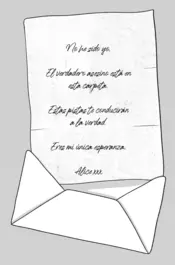 No he sido yo.
El verdadero asesino está en
esta carpeta.
Estas pistas te conducirán
a la verdad.
Eres mi única esperanza.
Alice xxx